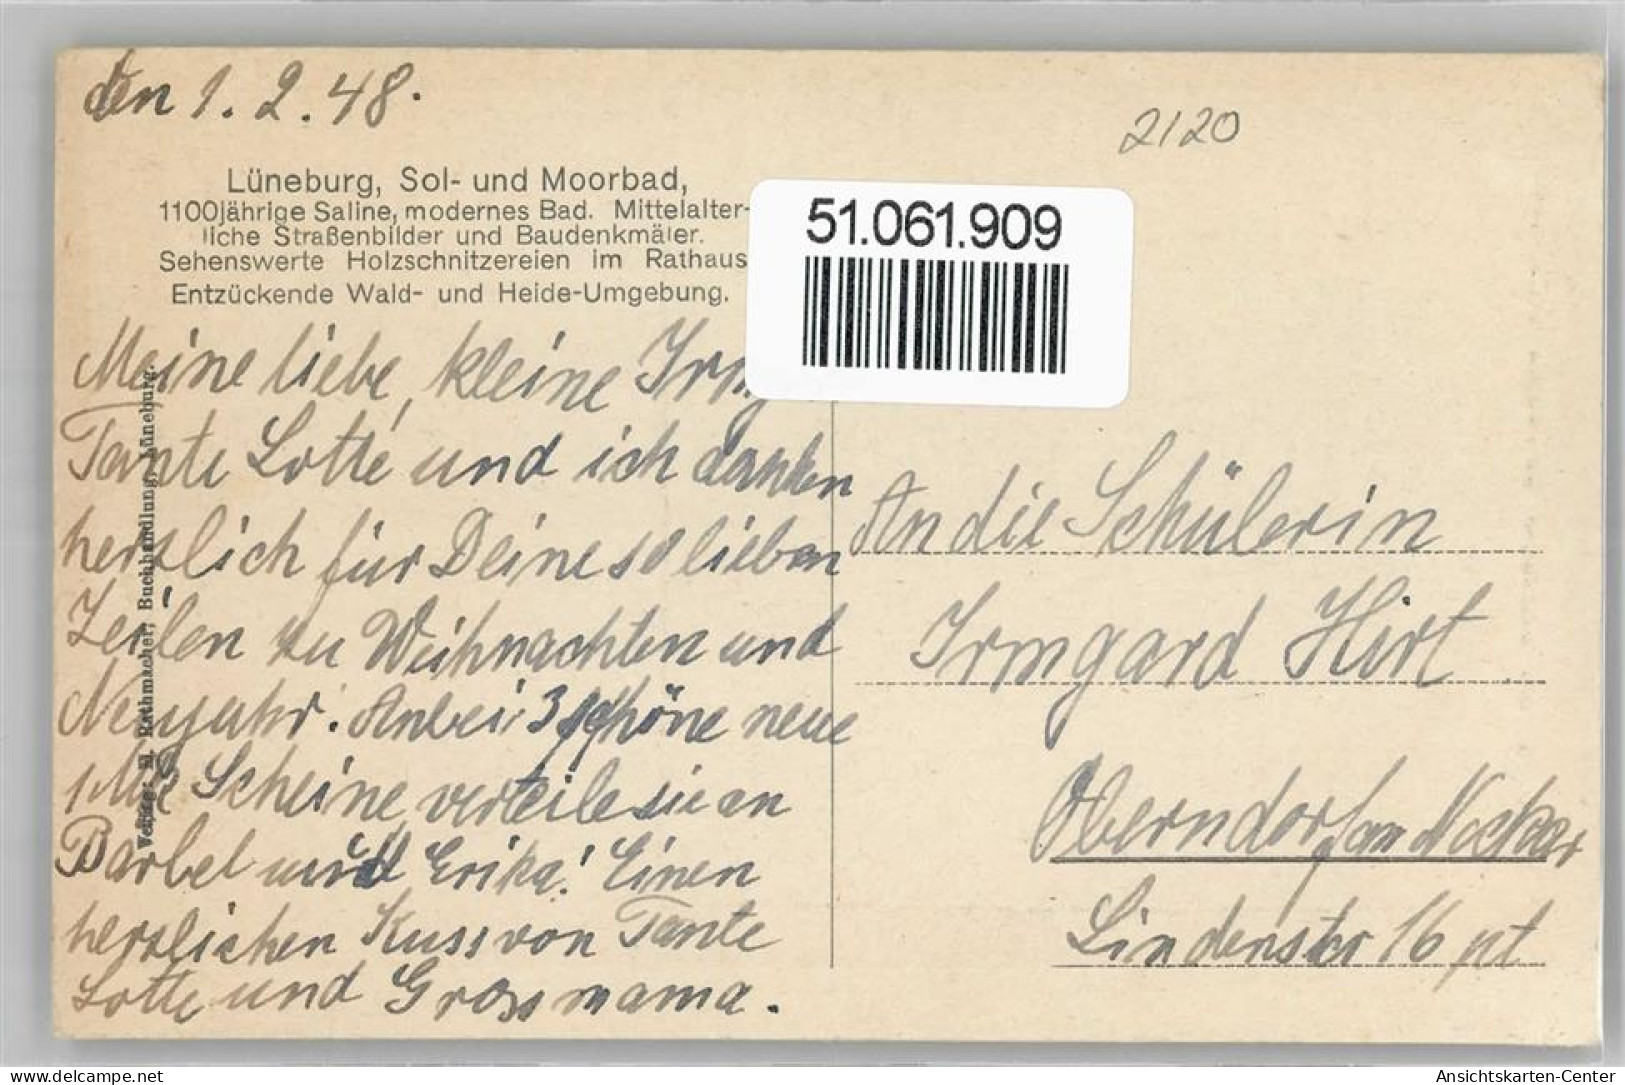 den 1.2.48.
2120
Lüneburg, Sol- und Moorbad,
1100jährige Saline, modernes Bad. Mittelalter-
liche Straßenbilder und Baudenkmäler.
Sehenswerte Holzschnitzereien im Rathaus
Entzückende Wald- und Heide-Umgebung.
51.061.909
Meine liebe, kleine
Tante Lotte und ich danken
herzlich für Deine so lieben
Zeilen zu Weihnachten und
Neujahr. Anbei 3 schöne neue
1 Scheine verteile sie an
Bärbel und Erika! Einen
herzlichen Kuss von Tante
Lotte und Grossmama.
Verlag: Rathmacher, Buchhandlung, Lüneburg.
An die Schülerin
Irmgard Hirt
Oberndorf am Neckar
Lindenstr 16 pt
delcampe.net
Ansichtskarten-Center